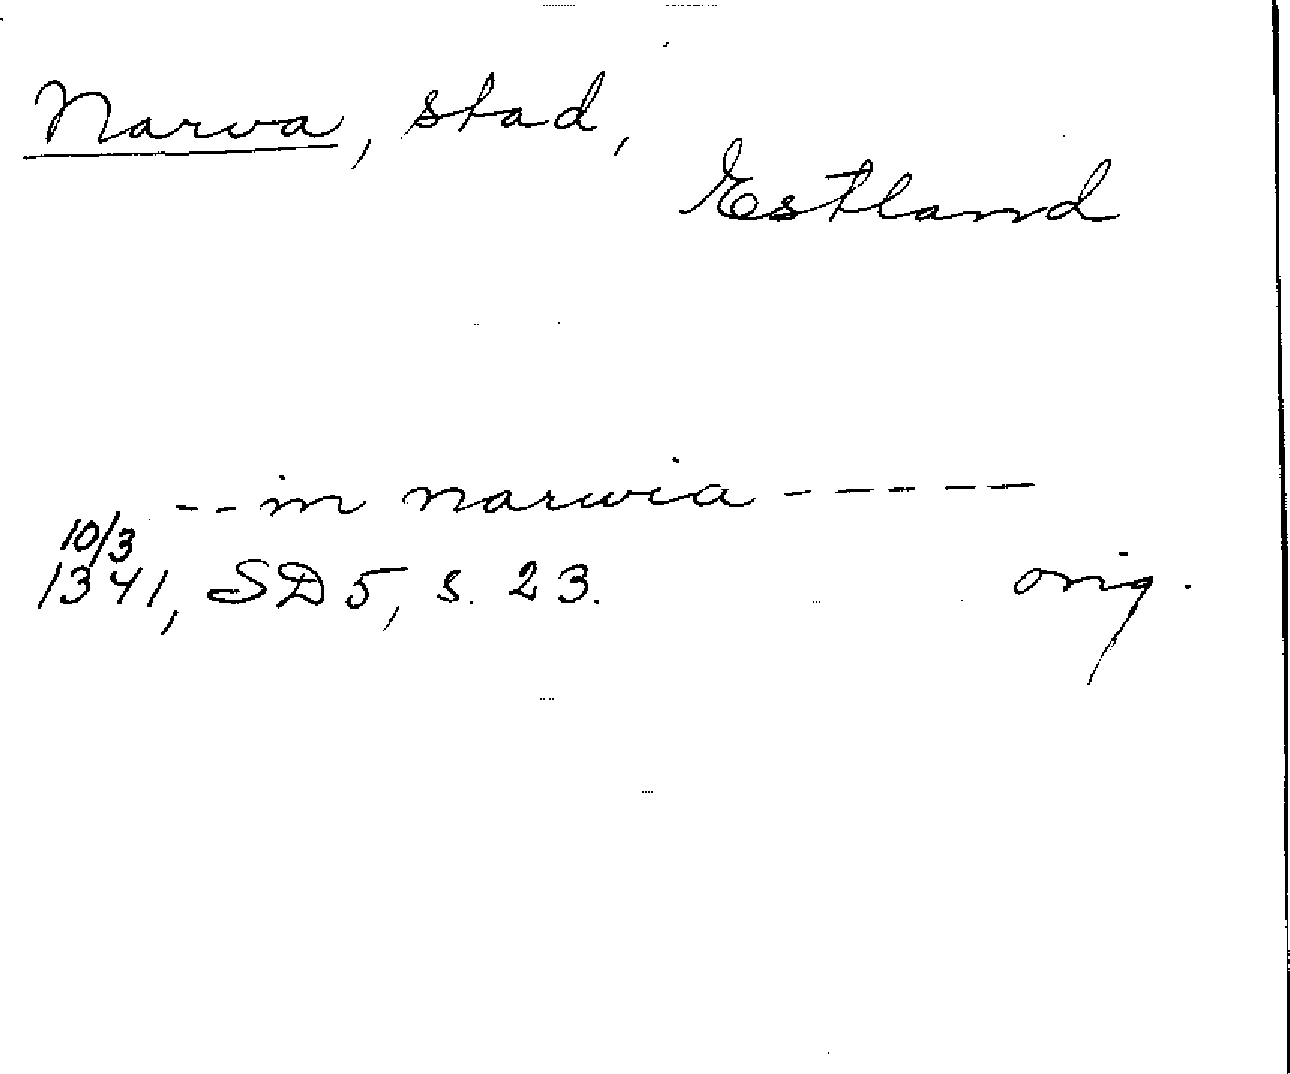 Narva, stad,
Estland
-- in narwia -----
10/3
1341, SD 5, s. 23. orig.